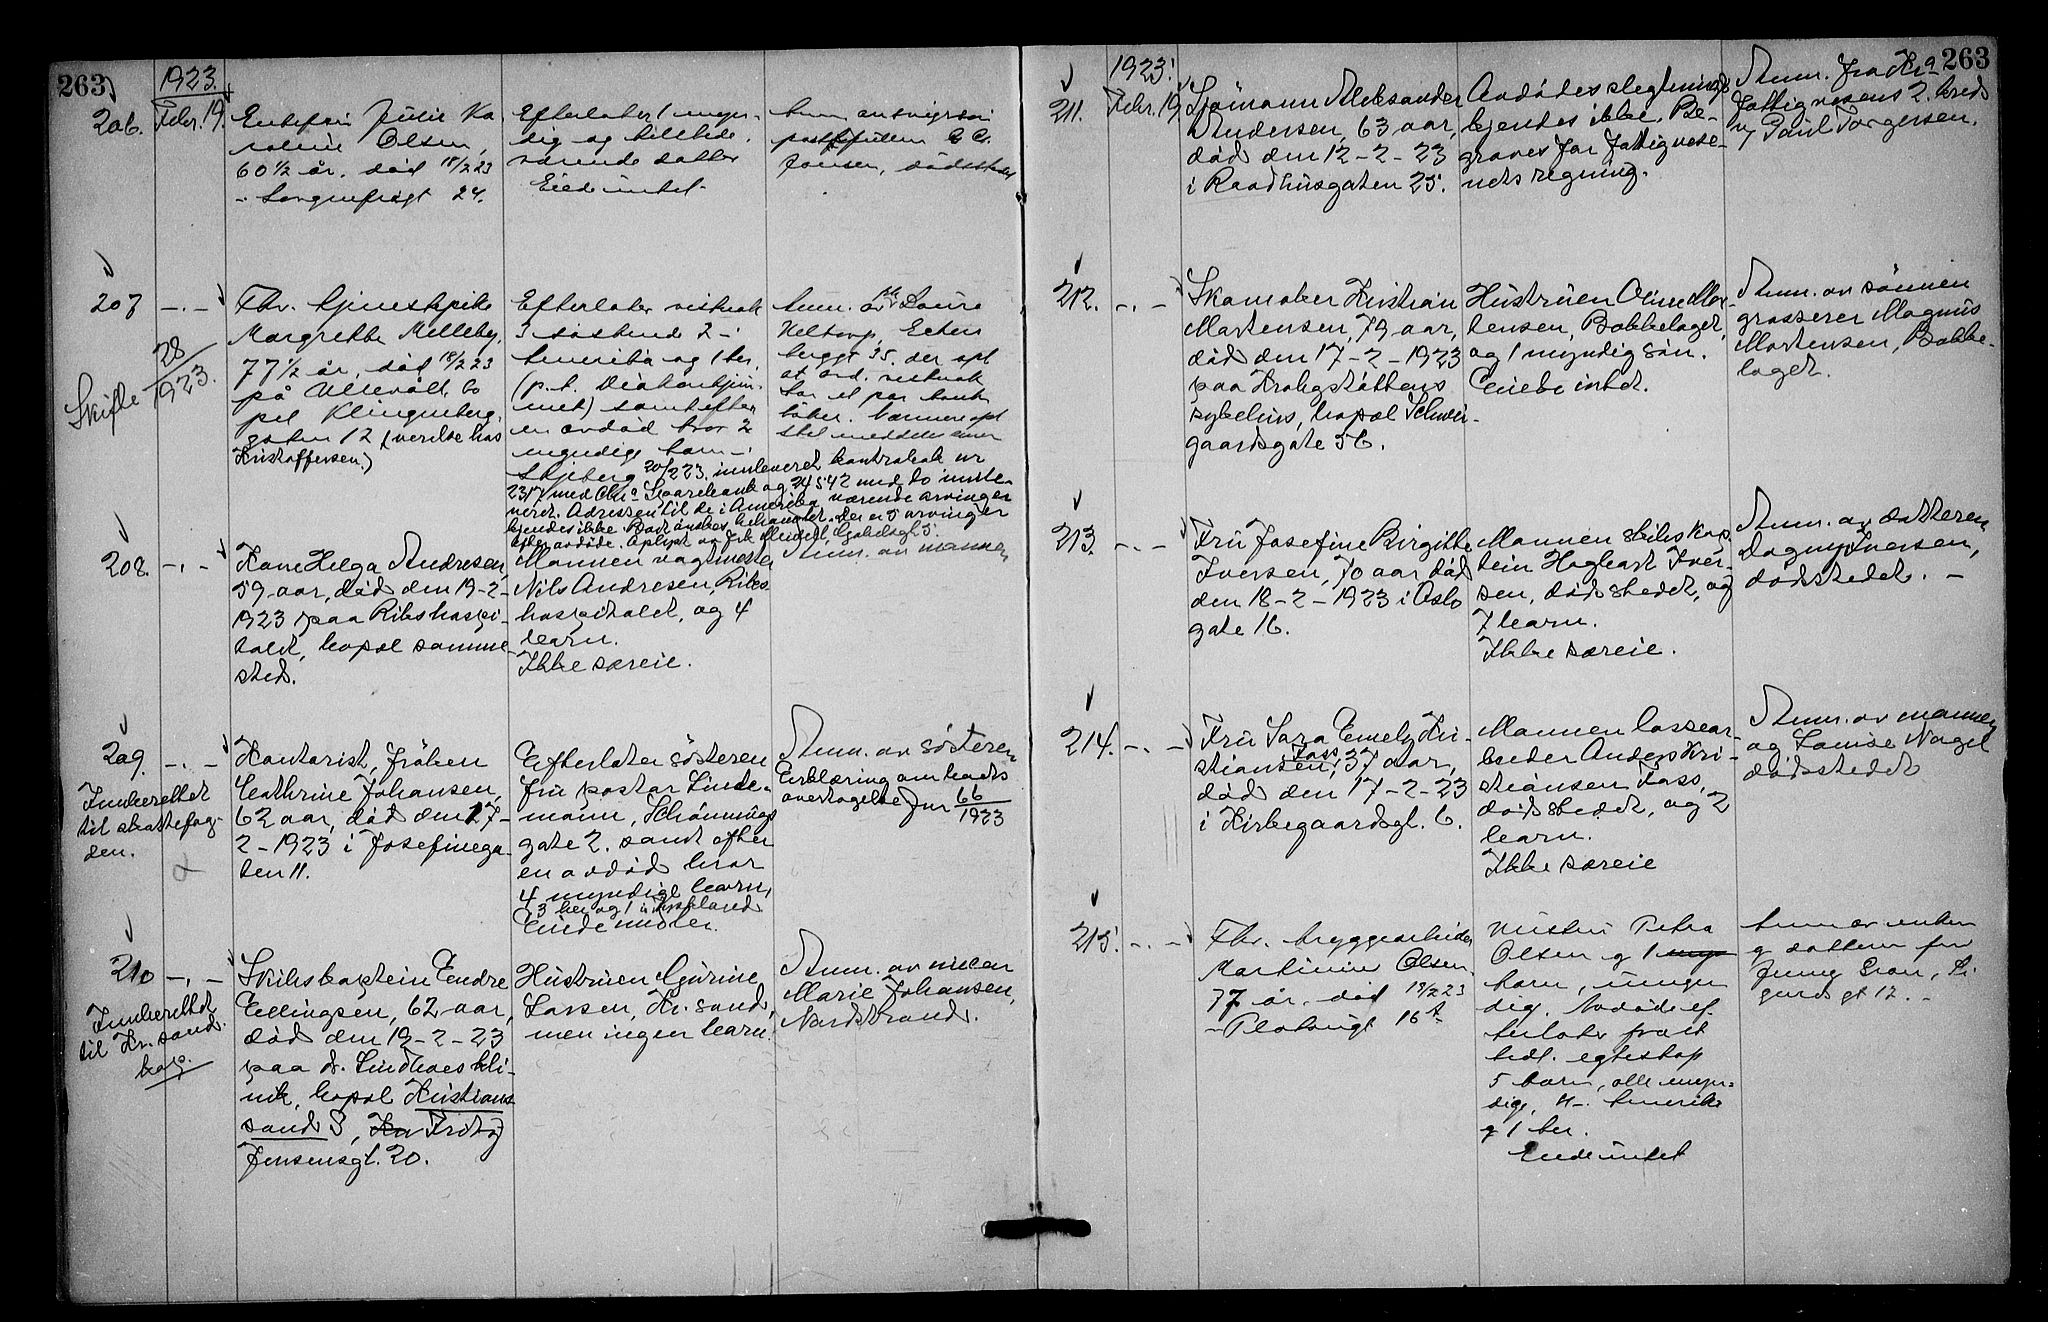 263
1923.
206.
Febr. 19.
Enkefru Julie Ka
roline Olsen,
60½ år. død 18/2 23
24.
Efterlater 1 myn-
dig og tilstede-
værende datter
Eied intet.
Anm. av
Jonsen, dødsstedet
207 -.-
Skifte 28/1923.
Fhv. tjenestepike
Margrethe Melleby,
77½ år, død 18/2 23
på Ullevål, bo
pel Klingenberg-
gaten 12 (værelse hos
Kristoffersen.)
Efterlater
3 søskende 2 i
Amerika og 1 her,
(p.t. Diakonhjem-
met) samt efter
en avdød bror 2
myndige barn i
Skjeberg 20/2 23. innleveret kontrabok nr
2317 med Chr.a Sparebank og 24542 med do inste-
veret. Adressen til de i Amerika værende arvinger
kjendes ikke. Boet ønskes behandlet. Der er 5 arvinger
efter avdøde. Oplyst av frk
Anm. av frk Laura
35. der opl.
at avd.
har et par bank
bøker. Nærmere opl
208. -.-
Kone Helga Andresen,
59 aar, død den 19-2-
1923 paa Rikshospi-
talet, bopæl samme-
sted.
Mannen vagtmester
Nils Andresen, Riks-
hospitalet, og 4
barn.
Ikke særeie.
Anm. av mannen
209. -.-
Innberettet
til skattefog-
den.
Kontorist, frøken
Cathrine Johansen,
62 aar, død den 17-
2-1923 i Josefinega-
ten 11.
Efterlater søsteren
fru pastor Linde-
mann, Schønnings
gate 2. samt efter
en avdød bror
4 myndige barn,
3 her og 1 i Tyskland
Eiede midler.
Anm. av søsteren
Erklæring om boets
overtagelse Jnr 66/1923
210 -.-
Innberettet
til Kr. sand.
Skibskaptein Endre
Ellingsen, 62 aar,
død den 19-2-23
paa dr. Lindboes kli-
nik, bopæl Kristians-
sand S, Fritz
Jensensgt. 20.
Hustruen Gurine
Larsen, Kr. sand,
men ingen barn.
Anm. av niecen
Marie Johansen,
Nordstrand.
263
1923.
211. Febr. 19
Sjømann Aleksander
Andersen, 63 aar,
død den 12-2-23
i Raadhusgaten 25.
Avdødes slegtninge
kjendes ikke. Be-
graves for fattigvese-
nets regning.
Anm. fra Kr.a
fattigvesens 2. kreds
v/ Paul Torgersen.
212. -.-
Skomaker Kristian
Martensen, 79 aar,
død den 17-2-1923
paa Krohgstøttens
sykehus, bopæl Schwei-
gaardsgate 56.
Hustruen Oline Mar-
tensen, Bakkelaget,
og 1 myndig søn.
Eiede intet.
Anm. av sønnen
grosserer Magnus
Martensen, Bakke-
laget.
213. -.-
Fru Josefine Birgitte
Iversen, 70 aar, død
den 18-2-1923 i Oslo
gate 16.
Mannen skibskap-
tein Hagbart Iver-
sen, dødsstedet, og
7 barn.
Ikke særeie.
Anm. av datteren
Dagny Iversen,
dødsstedet. -
214. -.-
Fru Sara Emely Kri-
stiansen Foss, 37 aar,
død den 17-2-23
i Kirkegaardsgt. 6.
Mannen losseар-
beider Anders Kri-
stiansen Foss,
dødsstedet, og 2
barn.
Ikke særeie
Anm. av mannen
og Louise Nagel
dødsstedet
215. -.-
Fhv. bryggearbeider
Martinius Olsen.
77 år. død 18/2 23
16
Hustru Petra
Olsen og 1
barn, umyn-
dig. Avdøde ef-
terlater fra et
tidl. egteskap
5 barn, alle myn-
dige, 4 i Amerika
og 1 her.
Eiede intet
Anm av enken
og datteren fru
Jenny Gran, Si-
gurds gt 12. -